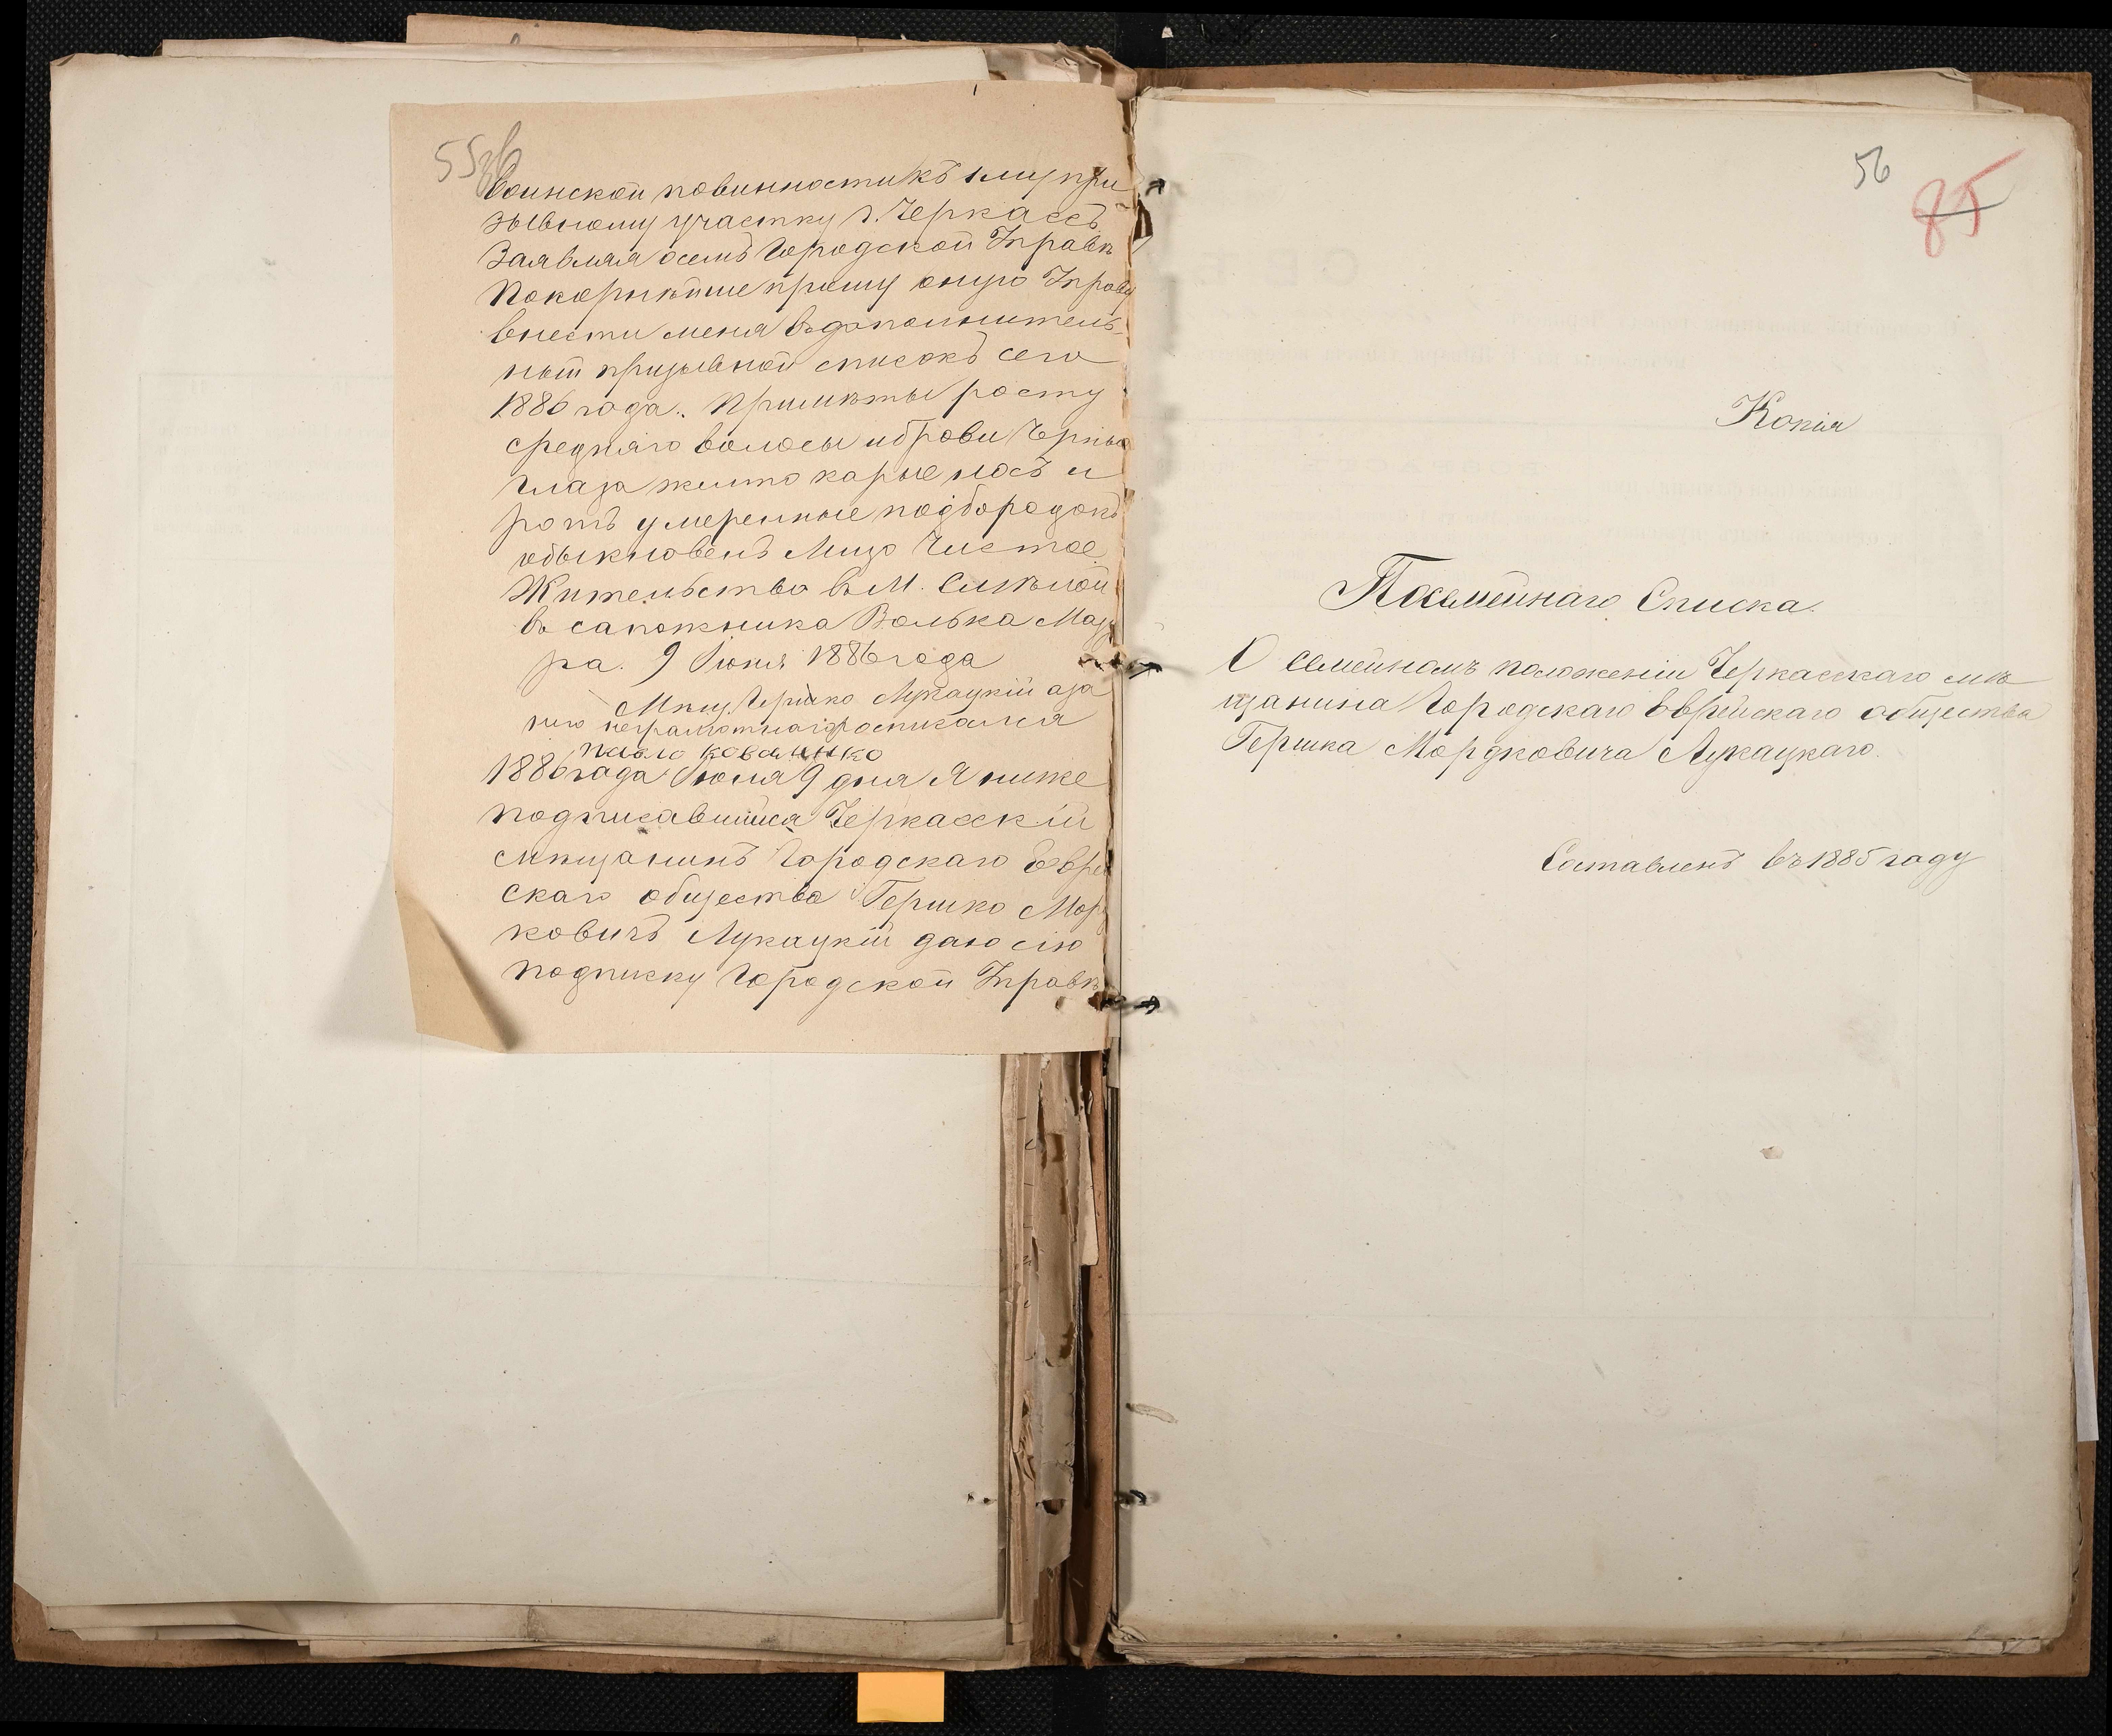 55об
воинской повинности къ 1 му при
зывному участку г. Черкассъ
Заявляя о семъ Городской Управѣ
Покорнѣйше прошу оную Управу
внести меня въ дополнитель-
ный призывной списокъ сего
1886 года. Примѣты росту
средняго волосы и брови Черные
глаза желто карые носъ и
ротъ умеренные подбородокъ
обыкновенъ Лицо Чистое
Жительство въ М. Смѣлой
въ сапожника Волька Маз
ра. 9 Іюля 1886 года
Мѣщ. Гершко Лукацкій а за
него неграмотнаго росписался
Павло Коваленко
1886 года Іюля 9 дня Я ниже
подписавшійся Черкасскій
мѣщанинъ Городскаго Еврей
скаго общества Гершко Морд
ковичъ Лукацкій даю сію
подписку Городской Управѣ
56
85
Копія
Посемейнаго Списка.
О семейномъ положеніи Черкасскаго мѣ
щанина Городскаго Еврейскаго общества
Гершка Мордковича Лукацкаго.
Составленъ въ 1885 году